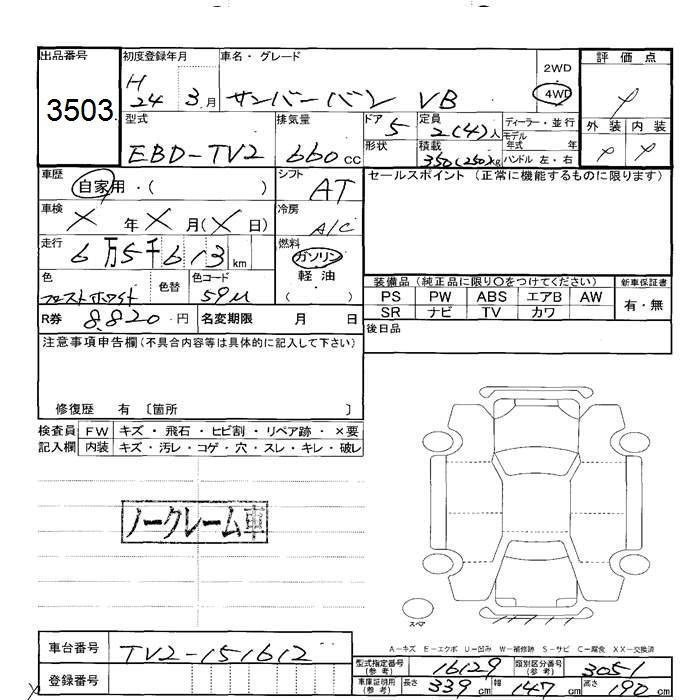 出品番号 初度登録年月 車名・グレード 2WD 評価点
3503 H24 3月 サンバーバン VB 4WD
型式 排気量 ドア 定員 ディーラー・並行 外装 内装
EBD-TV2 660cc 5 2(4)人 モデル年式 年
形状 積載 350(250)kg ハンドル 左・右
車歴 自家用・( ) シフト AT セールスポイント(正常に機能するものに限ります)
車検 × 年 × 月(×日) 冷房 A/C
走行 6万5千613km 燃料 ガソリン
色 フロストホワイト 色替 色コード 59U 軽油 ( )
装備品(純正品に限り○をつけてください) 新車保証書
PS PW ABS エアB AW 有・無
SR ナビ TV カワ
R券 8,820円 名変期限 月 日 後日品
注意事項申告欄(不具合内容等は具体的に記入して下さい)
修復歴 有 〔箇所 〕
検査員 FW キズ・飛石・ヒビ割・リペア跡・×要
記入欄 内装 キズ・汚レ・コゲ・穴・スレ・キレ・破レ
ノークレーム車
スペア
A-キズ E-エクボ U-凹み W-補修跡 S-サビ C-腐食 XX-交換済
車台番号 TV2-151612
型式指定番号(参考) 16129 類別区分番号(参考) 3051
登録番号
車庫証明用(参考) 長さ 339cm 幅 147cm 高さ 190cm